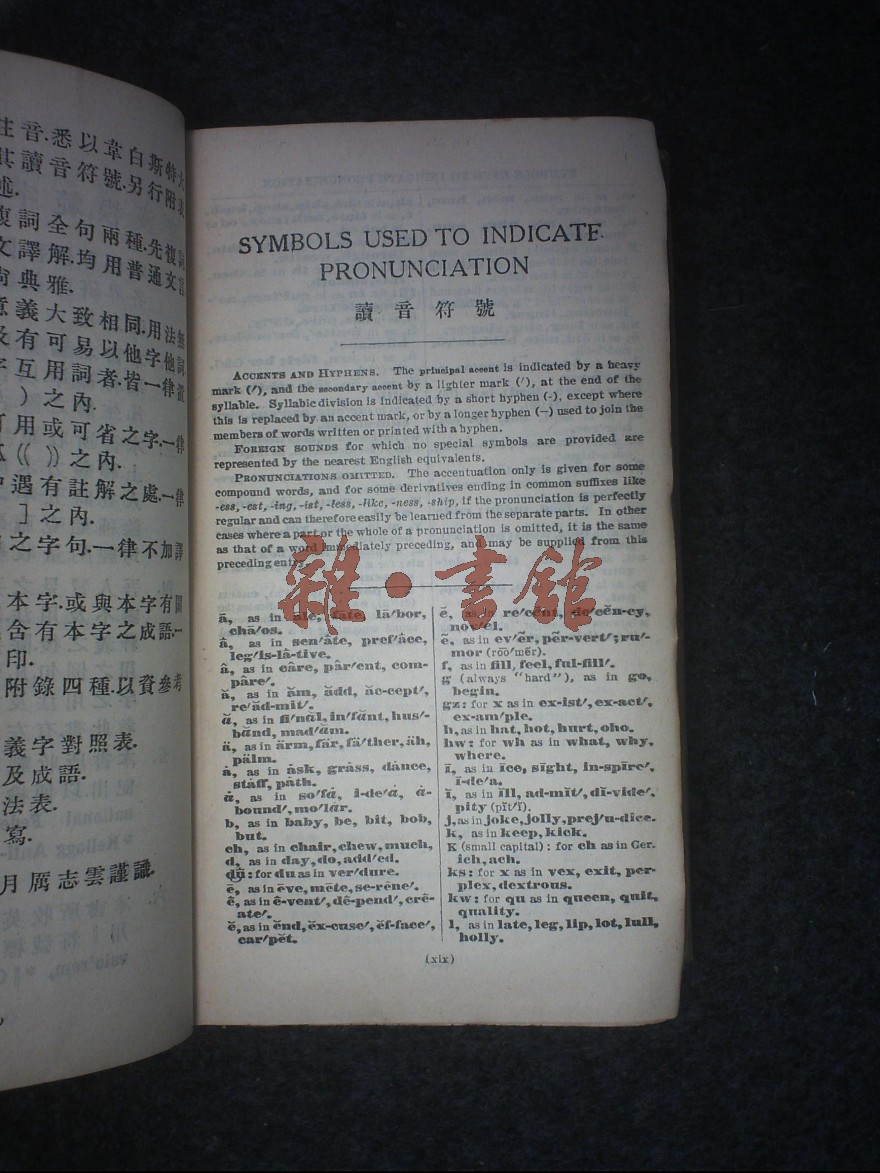 註音.悉以韋白斯特大
其讀音符號.另行附表
述.
複詞全句兩種.先複詞
文譯解.均用普通文言
尚典雅.
意義大致相同.用法無
及有可易以他字他詞
字互用詞者.皆一律置
)之內.
可用或可省之字.一律
(( ))之內.
中遇有註解之處.一律
]之內.
之字句.一律不加譯
本字.或與本字有關
含有本字之成語.一
印.
附錄四種.以資參考
義字對照表.
及成語.
法表.
寫.
月厲志雲謹識.
SYMBOLS USED TO INDICATE
PRONUNCIATION
讀音符號
ACCENTS AND HYPHENS. The principal accent is indicated by a heavy
mark (′), and the secondary accent by a lighter mark (′), at the end of the
syllable. Syllabic division is indicated by a short hyphen (-), except where
this is replaced by an accent mark, or by a longer hyphen (–) used to join the
members of words written or printed with a hyphen.
FOREIGN SOUNDS for which no special symbols are provided are
represented by the nearest English equivalents.
PRONUNCIATIONS OMITTED. The accentuation only is given for some
compound words, and for some derivatives ending in common suffixes like
-ess, -est, -ing, -ist, -less, -like, -ness, -ship, if the pronunciation is perfectly
regular and can therefore easily be learned from the separate parts. In other
cases where a part or the whole of a pronunciation is omitted, it is the same
as that of a word immediately preceding, and may be supplied from this
preceding entry.
雜·書館
ā, as in āle, fāte, lā′bor,
chā′os.
â, as in sen′âte, pref′âce,
leg′is-lâ-tive.
â, as in câre, pâr′ent, com-
pâre′.
ă, as in ăm, ădd, ăc-cept′,
re′ăd-mit′.
ă, as in fi′năl, in′fănt, hus′-
bănd, mad′ăm.
ä, as in ärm, fär, fä′ther, äh,
pälm.
ȧ, as in ȧsk, grȧss, dȧnce,
stȧff, pȧth.
ȧ, as in so′fȧ, i-de′ȧ, ȧ-
bound′, mo′lȧr.
b, as in baby, be, bit, bob,
but.
ch, as in chair, chew, much,
d, as in day, do, add′ed.
dū: for du as in ver′dure.
ē, as in ēve, mēte, se-rēne′.
ê, as in ê-vent′, dê-pend′, crê-
ate′.
ĕ, as in ĕnd, ĕx-cuse′, ĕf-face′,
car′pĕt.
ĕ, as in re′cĕnt, de′cĕn-cy,
nov′ĕl.
ẽ, as in ev′ẽr, pẽr-vert′; ru′-
mor (rōō′mẽr).
f, as in fill, feel, ful-fill′.
g (always "hard"), as in go,
begin.
gz: for x as in ex-ist′, ex-act′,
ex-am′ple.
h, as in hat, hot, hurt, oho.
hw: for wh as in what, why,
where.
ī, as in īce, sīght, in-spīre′,
ī-de′a.
ĭ, as in ĭll, ad-mĭt′, dĭ-vide′,
pity (pĭt′ĭ).
j, as in joke, jolly, prej′u-dice.
k, as in keep, kick.
K (small capital): for ch as in Ger.
ich, ach.
ks: for x as in vex, exit, per-
plex, dextrous.
kw: for qu as in queen, quit,
quality.
l, as in late, leg, lip, lot, lull,
holly.
(xix)